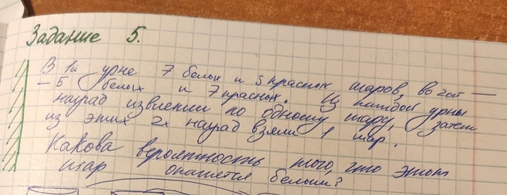 Задание 5.
В 1й урне 7 белых и 5 красных шаров, во 2ой —
— 5 белых и 7 красных. Из каждой урны
наугад извлекли по одному шару, затем
из этих 2х наугад взяли 1 шар.
Какова вероятность того, что этот
шар окажется белым?